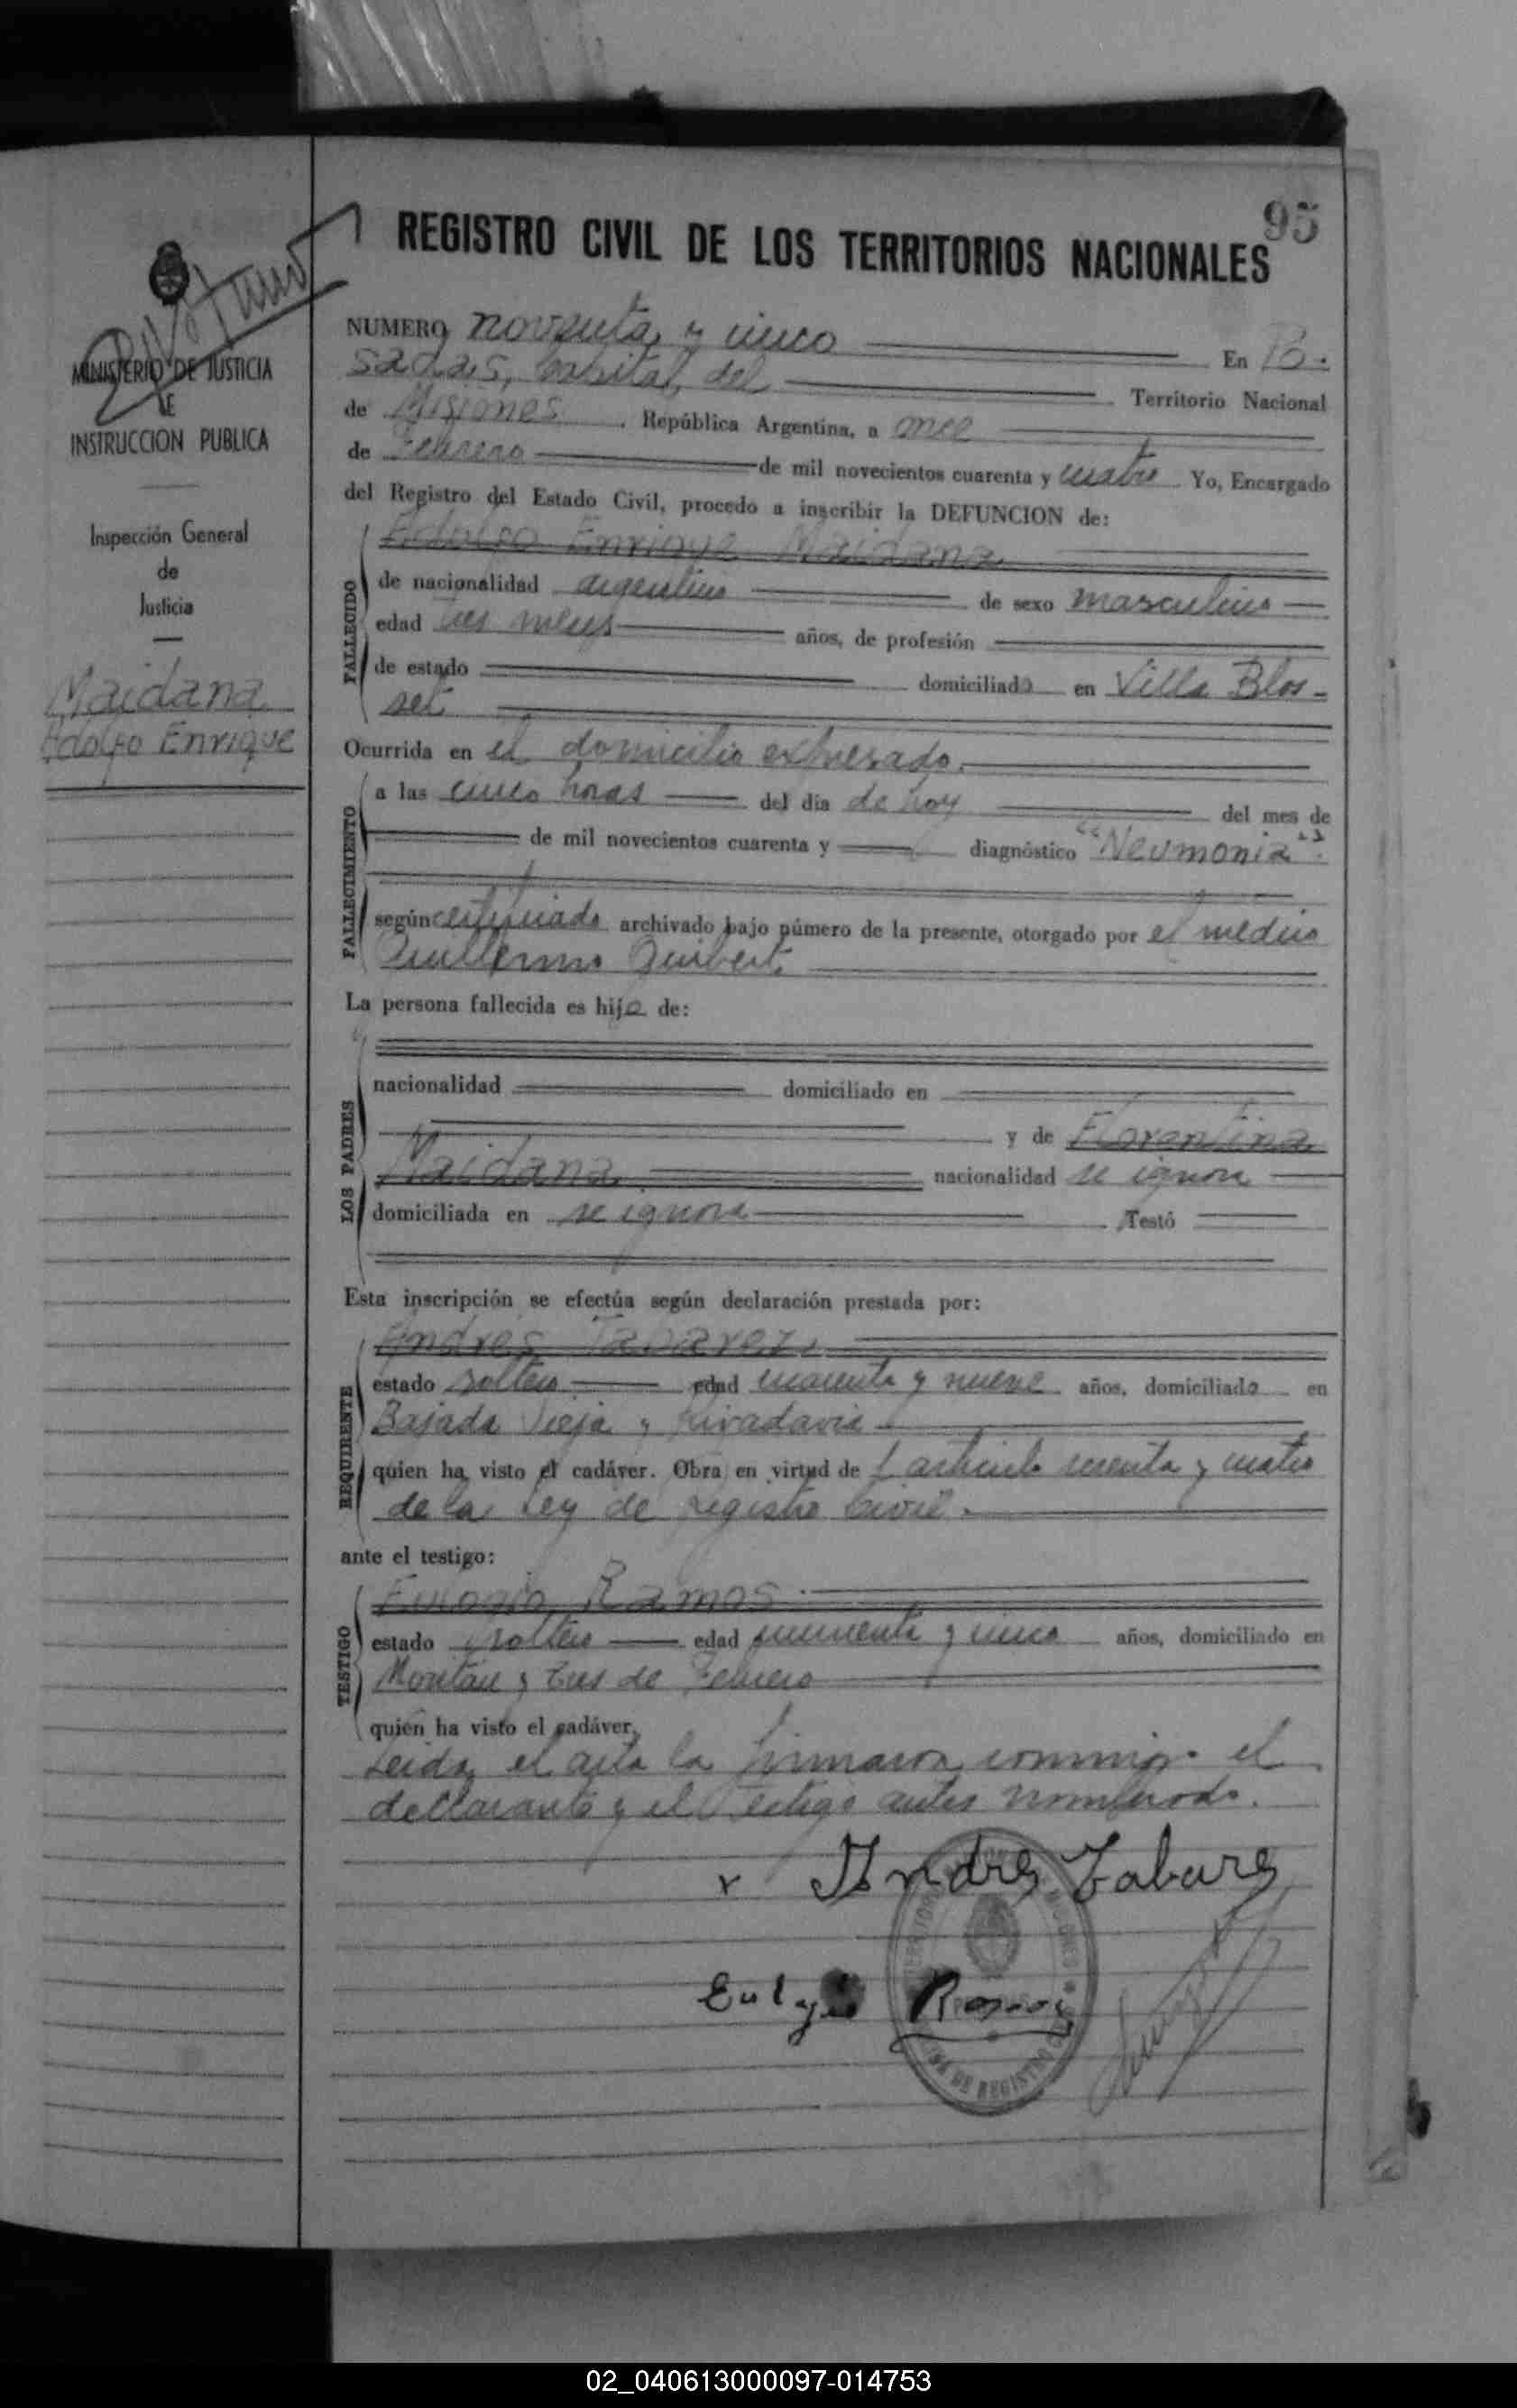 95
REGISTRO CIVIL DE LOS TERRITORIOS NACIONALES
MINISTERIO DE JUSTICIA
E
INSTRUCCION PUBLICA
Inspección General
de
Justicia
Maidana
Adolfo Enrique
NUMERO noventa y cinco En Po-
sadas, Capital del Territorio Nacional
de Misiones República Argentina, a once
de Febrero de mil novecientos cuarenta y cuatro Yo, Encargado
del Registro del Estado Civil, procedo a inscribir la DEFUNCION de:
Adolfo Enrique Maidana
FALLECIDO
de nacionalidad argentino de sexo masculino
edad tres meses años, de profesión
de estado domiciliado en Villa Blos-
set
Ocurrida en el domicilio expresado.
FALLECIMIENTO
a las cinco horas del dia de hoy del mes de
de mil novecientos cuarenta y diagnóstico "Neumonia".
según certificado archivado bajo número de la presente, otorgado por el medico
Guillermo Guibert
La persona fallecida es hijo de:
LOS PADRES
nacionalidad domiciliado en
y de Florentina
Maidana nacionalidad se ignora
domiciliada en se ignora Testó
Esta inscripción se efectúa según declaración prestada por:
Andres Tabarez
REQUIRENTE
estado soltero edad cuarenta y nueve años, domiciliado en
Bajada Vieja y Rivadavia
quien ha visto el cadáver. Obra en virtud de l articulo sesenta y cuatro
de la Ley de Registro Civil.
ante el testigo:
Eulogio Ramos
TESTIGO
estado soltero edad cincuenta y cinco años, domiciliado en
y Tres de Febrero
quien ha visto el cadáver.
Leida el acta la firmaron conmigo el
declarante y el testigo antes nombrado.
x Andres Tabares
Eulogio Ramos
02_040613000097-014753